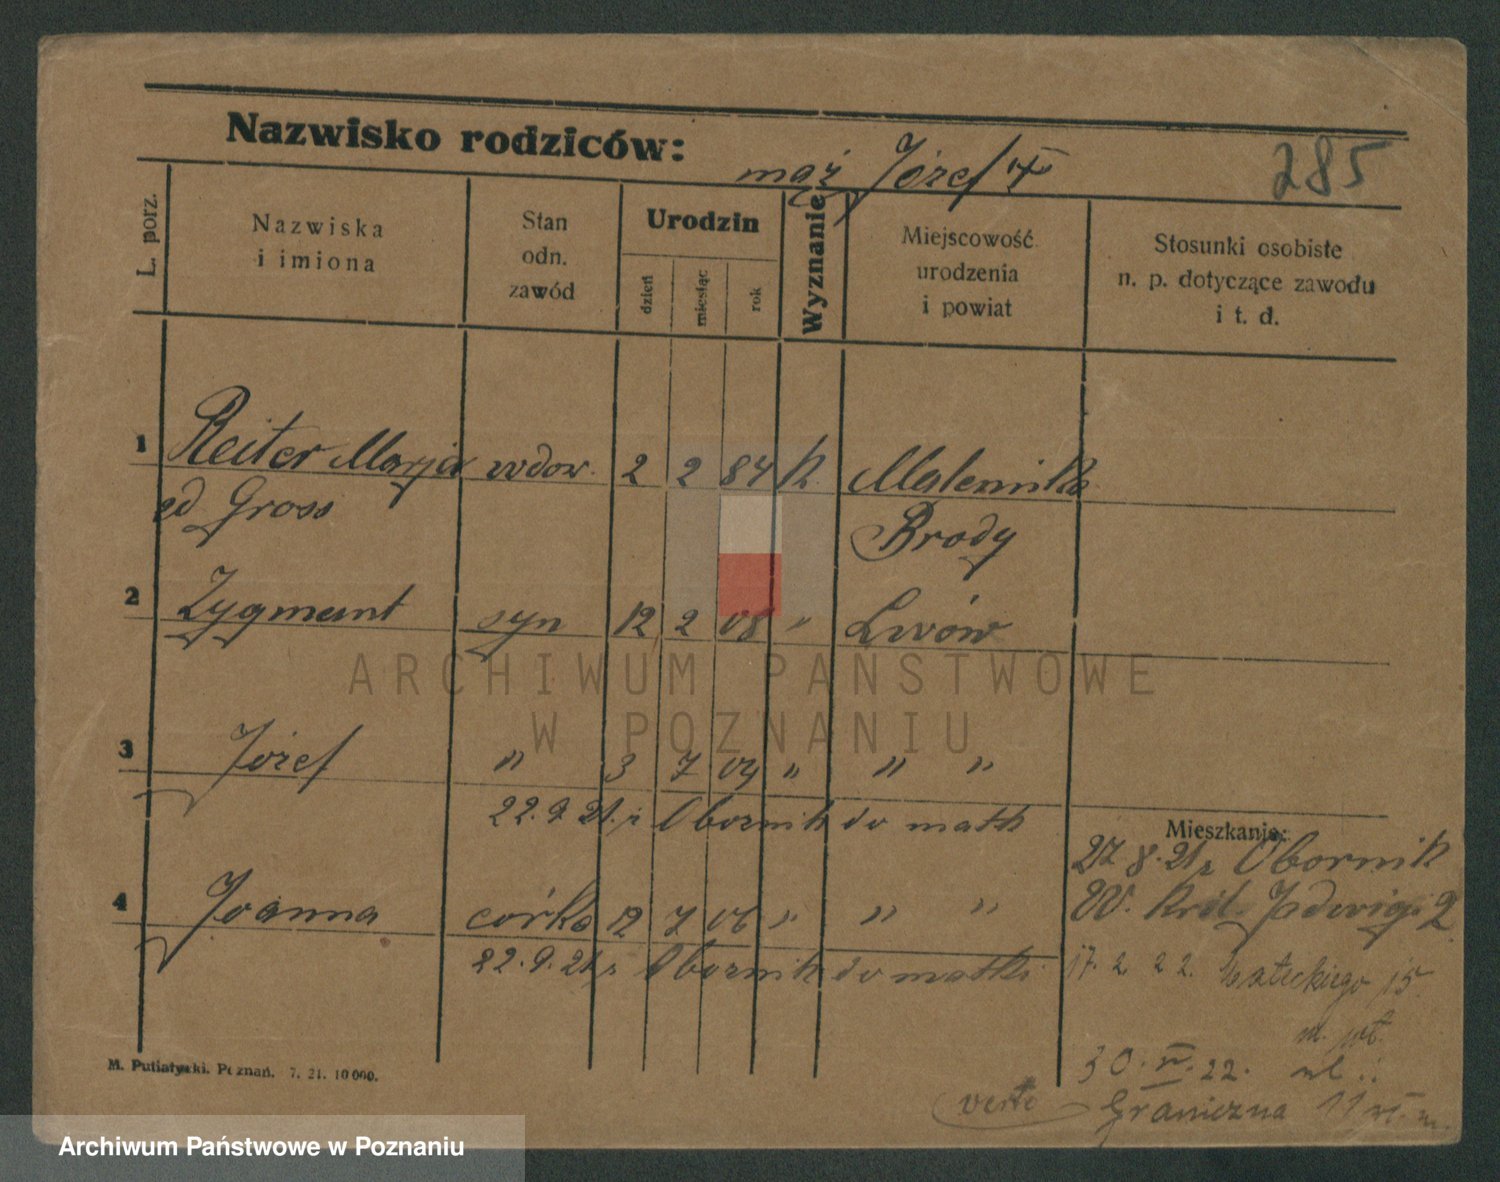 Nazwisko rodziców: mąż Józef 285
L. porz.
Nazwiska i imiona
Stan odn. zawód
Urodzin
dzień
miesiąc
rok
Wyznanie
Miejscowość urodzenia i powiat
Stosunki osobiste n. p. dotyczące zawodu i t. d.
1 Reiter Marja wdow. 2 2 84 k.
Gross Brody
2 Zygmunt syn 12 2 08 " Lwów
3 Józef " 3 7 " " "
22.9.21. z Obornik do matk
4 Joanna córka 12 7 06 " " "
22.9.21. z Obornik do matki
Mieszkanie:
27 8. 21 z Obornik
W. Król. Jadwigi 2
17. 2. 22. 15
30. 22.
verte Graniczna 11
M. Putiatycki. Poznań. 7. 21. 10 000.
ARCHIWUM PAŃSTWOWE
W POZNANIU
Archiwum Państwowe w Poznaniu